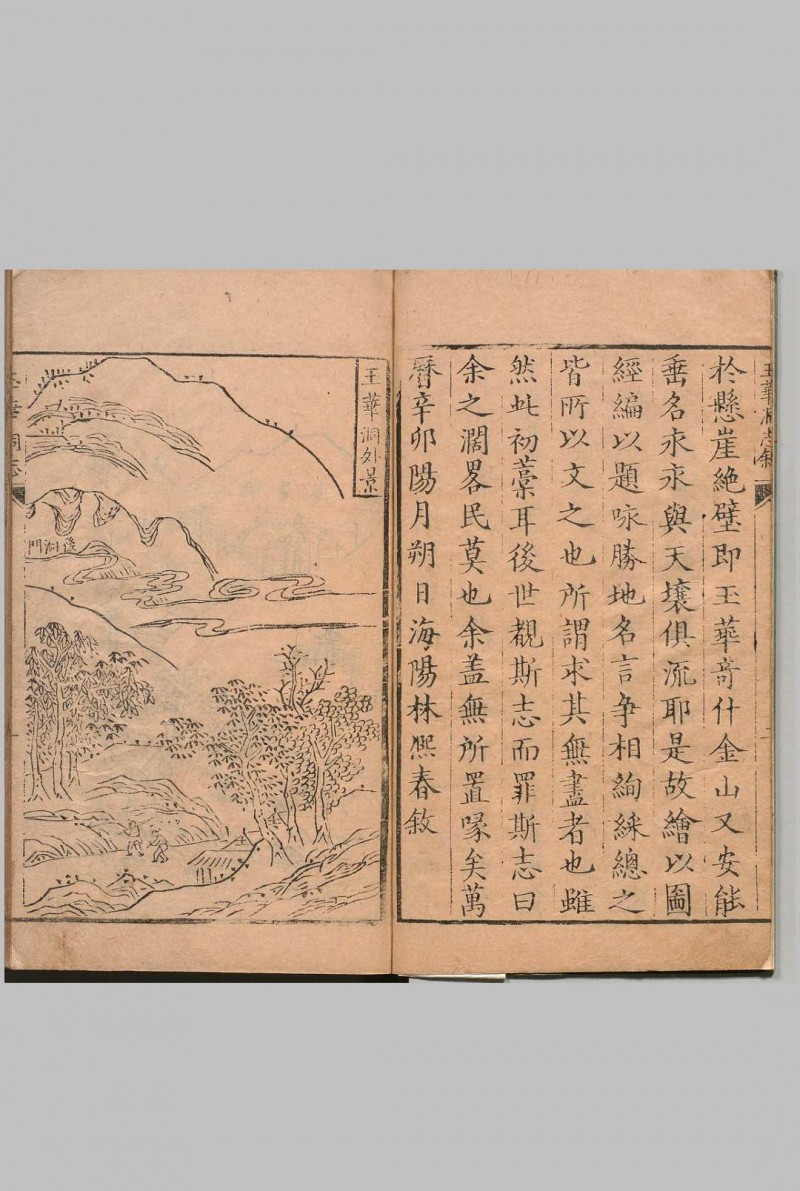 於懸崖絶壁即玉華竒什金山又安能
垂名永永與天壤俱流耶是故繪以圖
經編以題咏勝地名言争相絢綵總之
皆所以文之也所謂求其無盡者也雖
然此初藁耳後世覩斯志而罪斯志曰
余之濶畧民莫也余盖無所置喙矣萬
曆辛卯陽月朔日海陽林熈春敘
玉華洞志敘
玉華洞外景
後洞門
玉華洞志